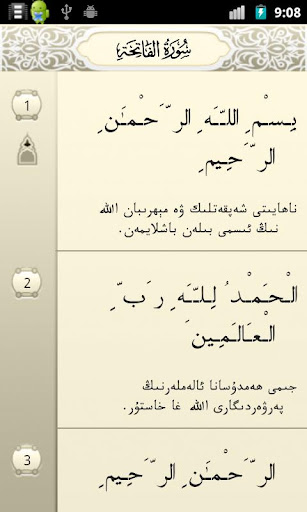 9:08
سُورَةُ الفَاتِحَةِ
1
بِسْمِ اللَّهِ الرَّحْمَٰنِ
الرَّحِيمِ
ناھايىتى شەپقەتلىك ۋە مېھرىبان الله
نىڭ ئىسمى بىلەن باشلايمەن.
2
الْحَمْدُ لِلَّهِ رَبِّ
الْعَالَمِينَ
جىمى ھەمدۇسانا ئالەملەرنىڭ
پەرۋەردىگارى الله غا خاستۇر.
3
الرَّحْمَٰنِ الرَّحِيمِ